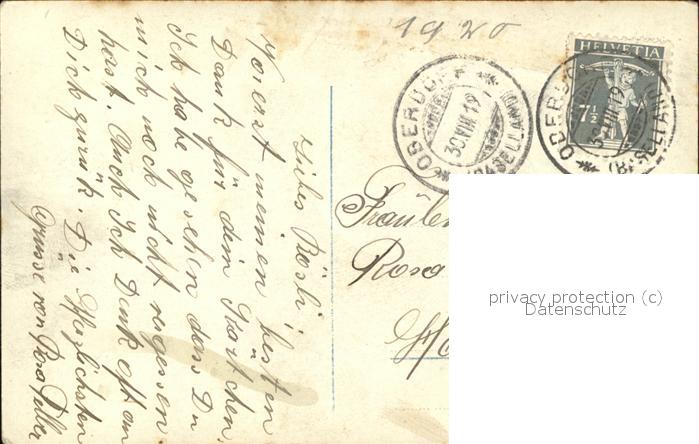 1920
HELVETIA
7½
OBERDORF
30.VIII.19
(BASELLAND)
OBERDORF
30.VIII.19
(BASELLAND)
Liebes Rösli!
Vorerst meinen besten
Dank für dem Kärtchen.
Ich habe gesehen dass Du
mich noch nicht vergessen
hast. Auch Ich Denk oft an
Dich zurück. Die Herzlichsten
Grüsse von Rosa
Fräulein
Rosa
privacy protection (c)
Datenschutz